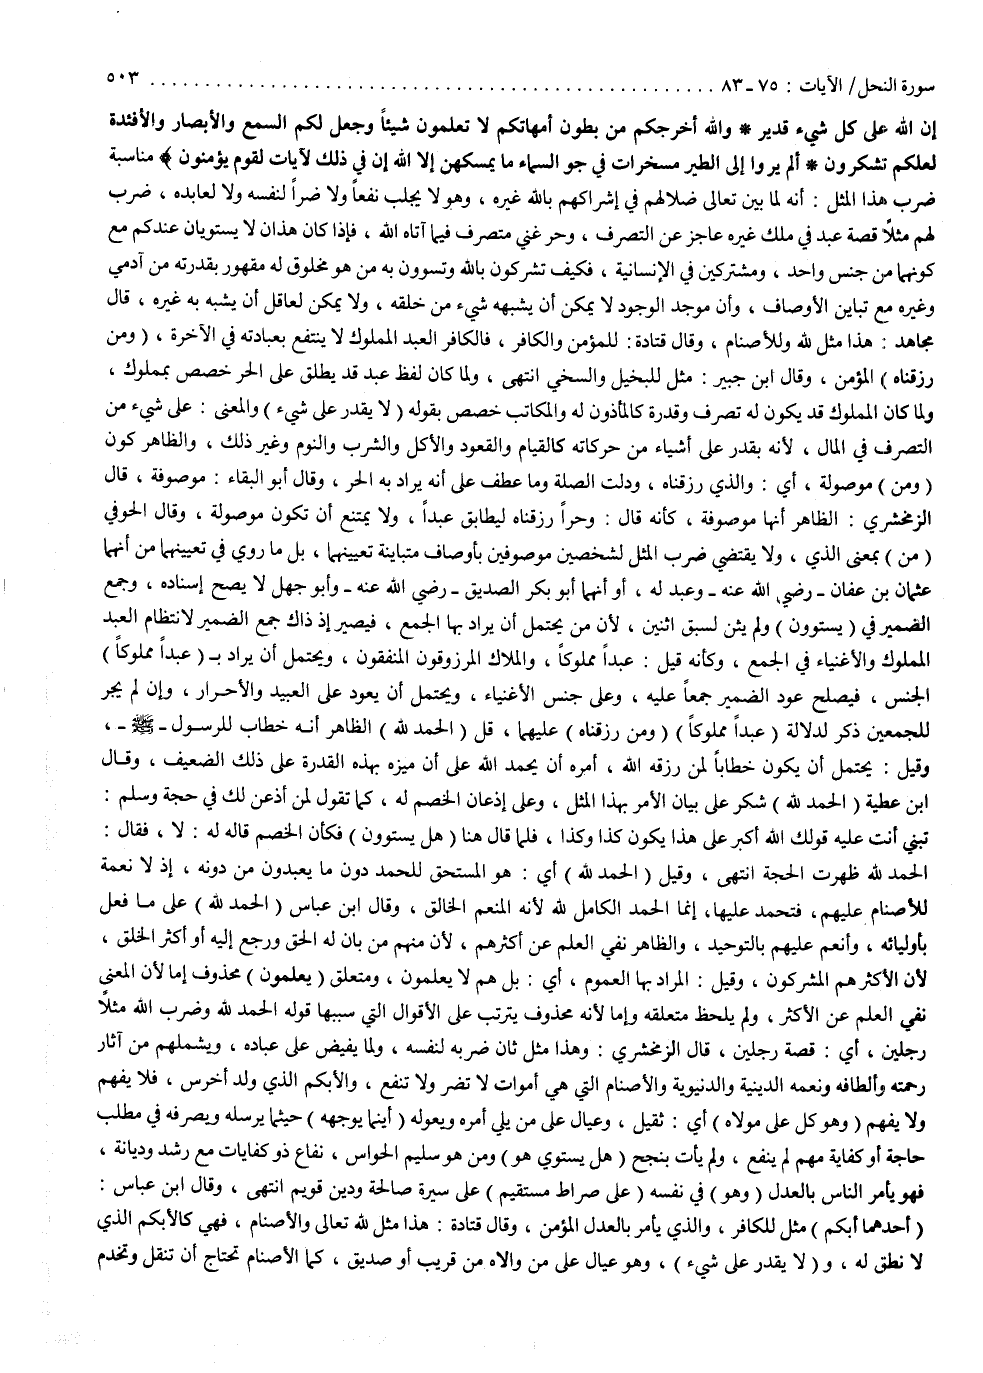 سورة النحل/ الآيات : ٧٥-٨٣ ........................................................ ٥٠٣
إن الله على كل شيء قدير * والله أخرجكم من بطون أمهاتكم لا تعلمون شيئاً وجعل لكم السمع والأبصار والأفئدة
لعلكم تشكرون * ألم يروا إلى الطير مسخرات في جو السماء ما يمسكهن إلا الله إن في ذلك لآيات لقوم يؤمنون ﴾ مناسبة
ضرب هذا المثل : أنه لما بين تعالى ضلالهم في إشراكهم بالله غيره ، وهو لا يجلب نفعاً ولا ضراً لنفسه ولا لعابده ، ضرب
لهم مثلاً قصة عبد في ملك غيره عاجز عن التصرف ، وحر غني متصرف فيما آتاه الله ، فإذا كان هذان لا يستويان عندكم مع
كونهما من جنس واحد ، ومشتركين في الإنسانية ، فكيف تشركون بالله وتسوون به من هو مخلوق له مقهور بقدرته من آدمي
وغيره مع تباين الأوصاف ، وأن موجد الوجود لا يمكن أن يشبهه شيء من خلقه ، ولا يمكن لعاقل أن يشبه به غيره ، قال
مجاهد : هذا مثل لله وللأصنام ، وقال قتادة : للمؤمن والكافر ، فالكافر العبد المملوك لا ينتفع بعبادته في الآخرة ، ( ومن
رزقناه ) المؤمن ، وقال ابن جبير : مثل للبخيل والسخي انتهى ، ولما كان لفظ عبد قد يطلق على الحر خصص بمملوك ،
ولما كان المملوك قد يكون له تصرف وقدرة كالمأذون له والمكاتب خصص بقوله ( لا يقدر على شيء ) والمعنى : على شيء من
التصرف في المال ، لأنه يقدر على أشياء من حركاته كالقيام والقعود والأكل والشرب والنوم وغير ذلك ، والظاهر كون
( ومن ) موصولة ، أي : والذي رزقناه ، ودلت الصلة وما عطف على أنه يراد به الحر ، وقال أبو البقاء : موصوفة ، قال
الزمخشري : الظاهر أنها موصوفة ، كأنه قال : وحراً رزقناه ليطابق عبداً ، ولا يمتنع أن تكون موصولة ، وقال الحوفي
( من ) بمعنى الذي ، ولا يقتضي ضرب المثل لشخصين موصوفين بأوصاف متباينة تعيينهما ، بل ما روي في تعيينهما من أنهما
عثمان بن عفان - رضي الله عنه - وعبد له ، أو أنهما أبو بكر الصديق - رضي الله عنه - وأبو جهل لا يصح إسناده ، وجمع
الضمير في ( يستوون ) ولم يثن لسبق اثنين ، لأن من يحتمل أن يراد بها الجمع ، فيصير إذ ذاك جمع الضمير لانتظام العبد
المملوك والأغنياء في الجمع ، وكأنه قيل : عبداً مملوكاً ، والملاك المرزوقون المنفقون ، ويحتمل أن يراد بـ ( عبداً مملوكاً )
الجنس ، فيصلح عود الضمير جمعاً عليه ، وعلى جنس الأغنياء ، ويحتمل أن يعود على العبيد والأحرار ، وإن لم يجر
للجمعين ذكر لدلالة ( عبداً مملوكاً ) ( ومن رزقناه ) عليهما ، قل ( الحمد لله ) الظاهر أنه خطاب للرسول - ﷺ - ،
وقيل : يحتمل أن يكون خطاباً لمن رزقه الله ، أمره أن يحمد الله على أن ميزه بهذه القدرة على ذلك الضعيف ، وقال
ابن عطية ( الحمد لله ) شكر على بيان الأمر بهذا المثل ، وعلى إذعان الخصم له ، كما تقول لمن أذعن لك في حجة وسلم :
تبني أنت عليه قولك الله أكبر على هذا يكون كذا وكذا ، فلما قال هنا ( هل يستوون ) فكأن الخصم قاله له : لا ، فقال :
الحمد لله ظهرت الحجة انتهى ، وقيل ( الحمد لله ) أي : هو المستحق للحمد دون ما يعبدون من دونه ، إذ لا نعمة
للأصنام عليهم، فتحمد عليها، إنما الحمد الكامل لله لأنه المنعم الخالق ، وقال ابن عباس ( الحمد لله ) على ما فعل
بأوليائه ، وأنعم عليهم بالتوحيد ، والظاهر نفي العلم عن أكثرهم ، لأن منهم من بان له الحق ورجع إليه أو أكثر الخلق ،
لأن الأكثر هم المشركون ، وقيل : المراد بها العموم ، أي : بل هم لا يعلمون ، ومتعلق ( يعلمون ) محذوف إما لأن المعنى
نفي العلم عن الأكثر ، ولم يلحظ متعلقه وإما لأنه محذوف يترتب على الأقوال التي سببها قوله الحمد لله وضرب الله مثلاً
رجلين ، أي : قصة رجلين ، قال الزمخشري : وهذا مثل ثان ضربه لنفسه ، ولما يفيض على عباده ، ويشملهم من آثار
رحمته وألطافه ونعمه الدينية والدنيوية والأصنام التي هي أموات لا تضر ولا تنفع ، والأبكم الذي ولد أخرس ، فلا يفهم
ولا يفهم ( وهو كل على مولاه ) أي : ثقيل ، وعيال على من يلي أمره ويعوله ( أينما يوجهه ) حيثما يرسله ويصرفه في مطلب
حاجة أو كفاية مهم لم ينفع ، ولم يأت بنجح ( هل يستوي هو ) ومن هو سليم الحواس ، نفاع ذو كفايات مع رشد وديانة ،
فهو يأمر الناس بالعدل ( وهو ) في نفسه ( على صراط مستقيم ) على سيرة صالحة ودين قويم انتهى ، وقال ابن عباس :
( أحدهما أبكم ) مثل للكافر ، والذي يأمر بالعدل المؤمن ، وقال قتادة : هذا مثل لله تعالى والأصنام ، فهي كالأبكم الذي
لا نطق له ، و ( لا يقدر على شيء ) ، وهو عيال على من والاه من قريب أو صديق ، كما الأصنام تحتاج أن تنقل وتخدم